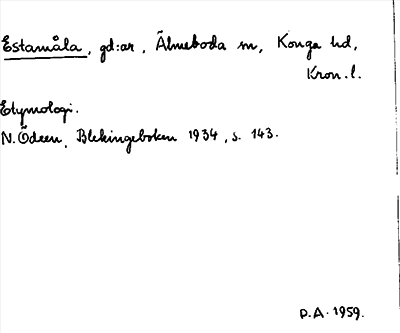 Estamåla, gd:ar, Älmeboda sn, Konga hd,
Kron.l.
Etymologi.
N. Ödeen, Blekingeboken 1934, s. 143.
P.A. 1959.